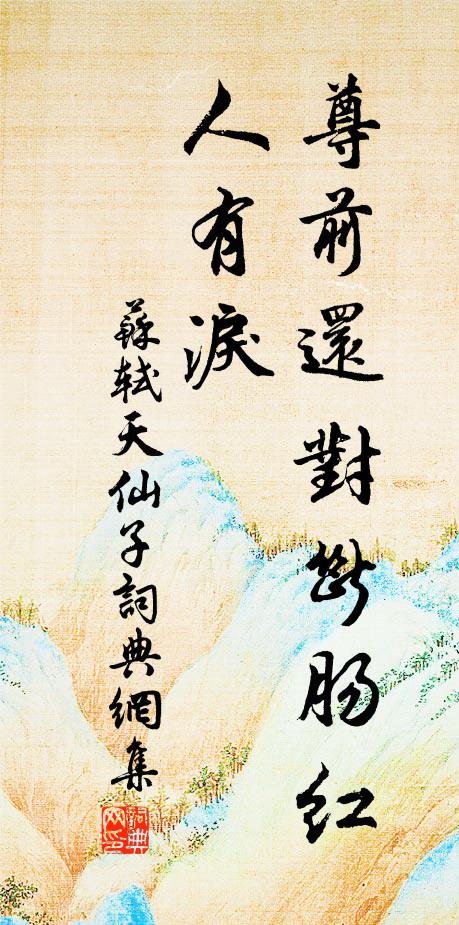 尊前還對斷腸紅
人有淚
蘇軾天仙子詞典網集
詞典
网印